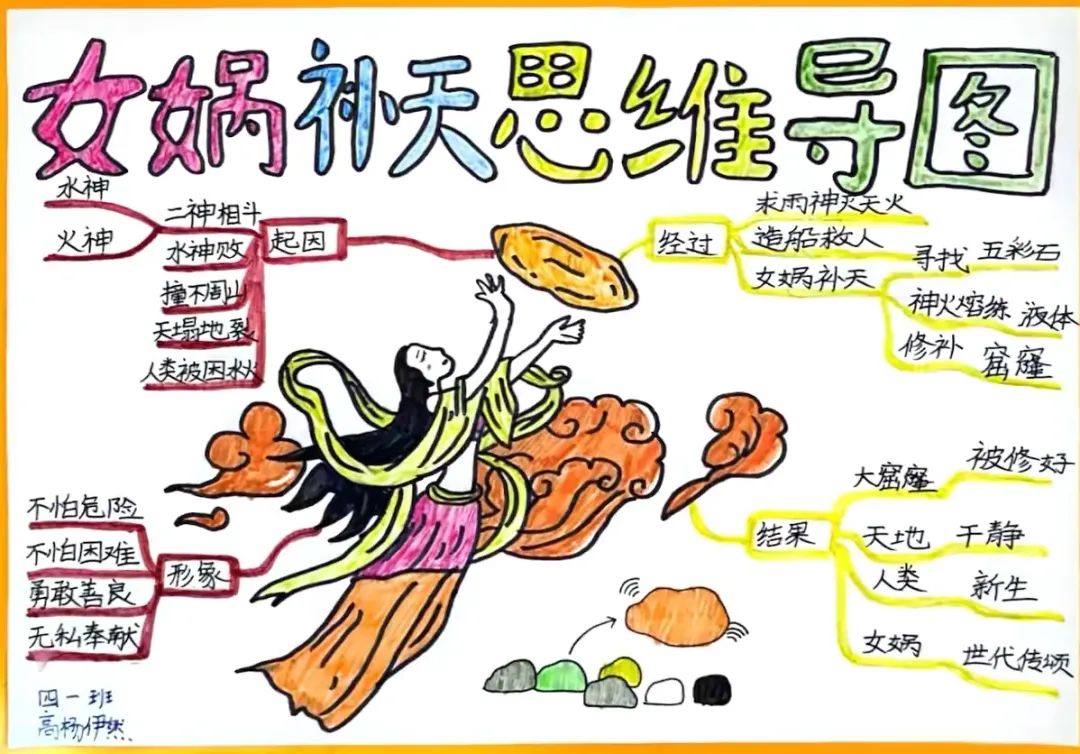 女娲补天思维导图
起因
二神相斗
水神
火神
水神败
撞不周山
天塌地裂
人类被困水火
经过
求雨神灭天火
造船救人
女娲补天
寻找 五彩石
神火熔练 液体
修补 窟窿
结果
大窟窿 被修好
天地 干静
人类 新生
女娲 世代传颂
形象
不怕危险
不怕困难
勇敢善良
无私奉献
四一班
高杨伊然